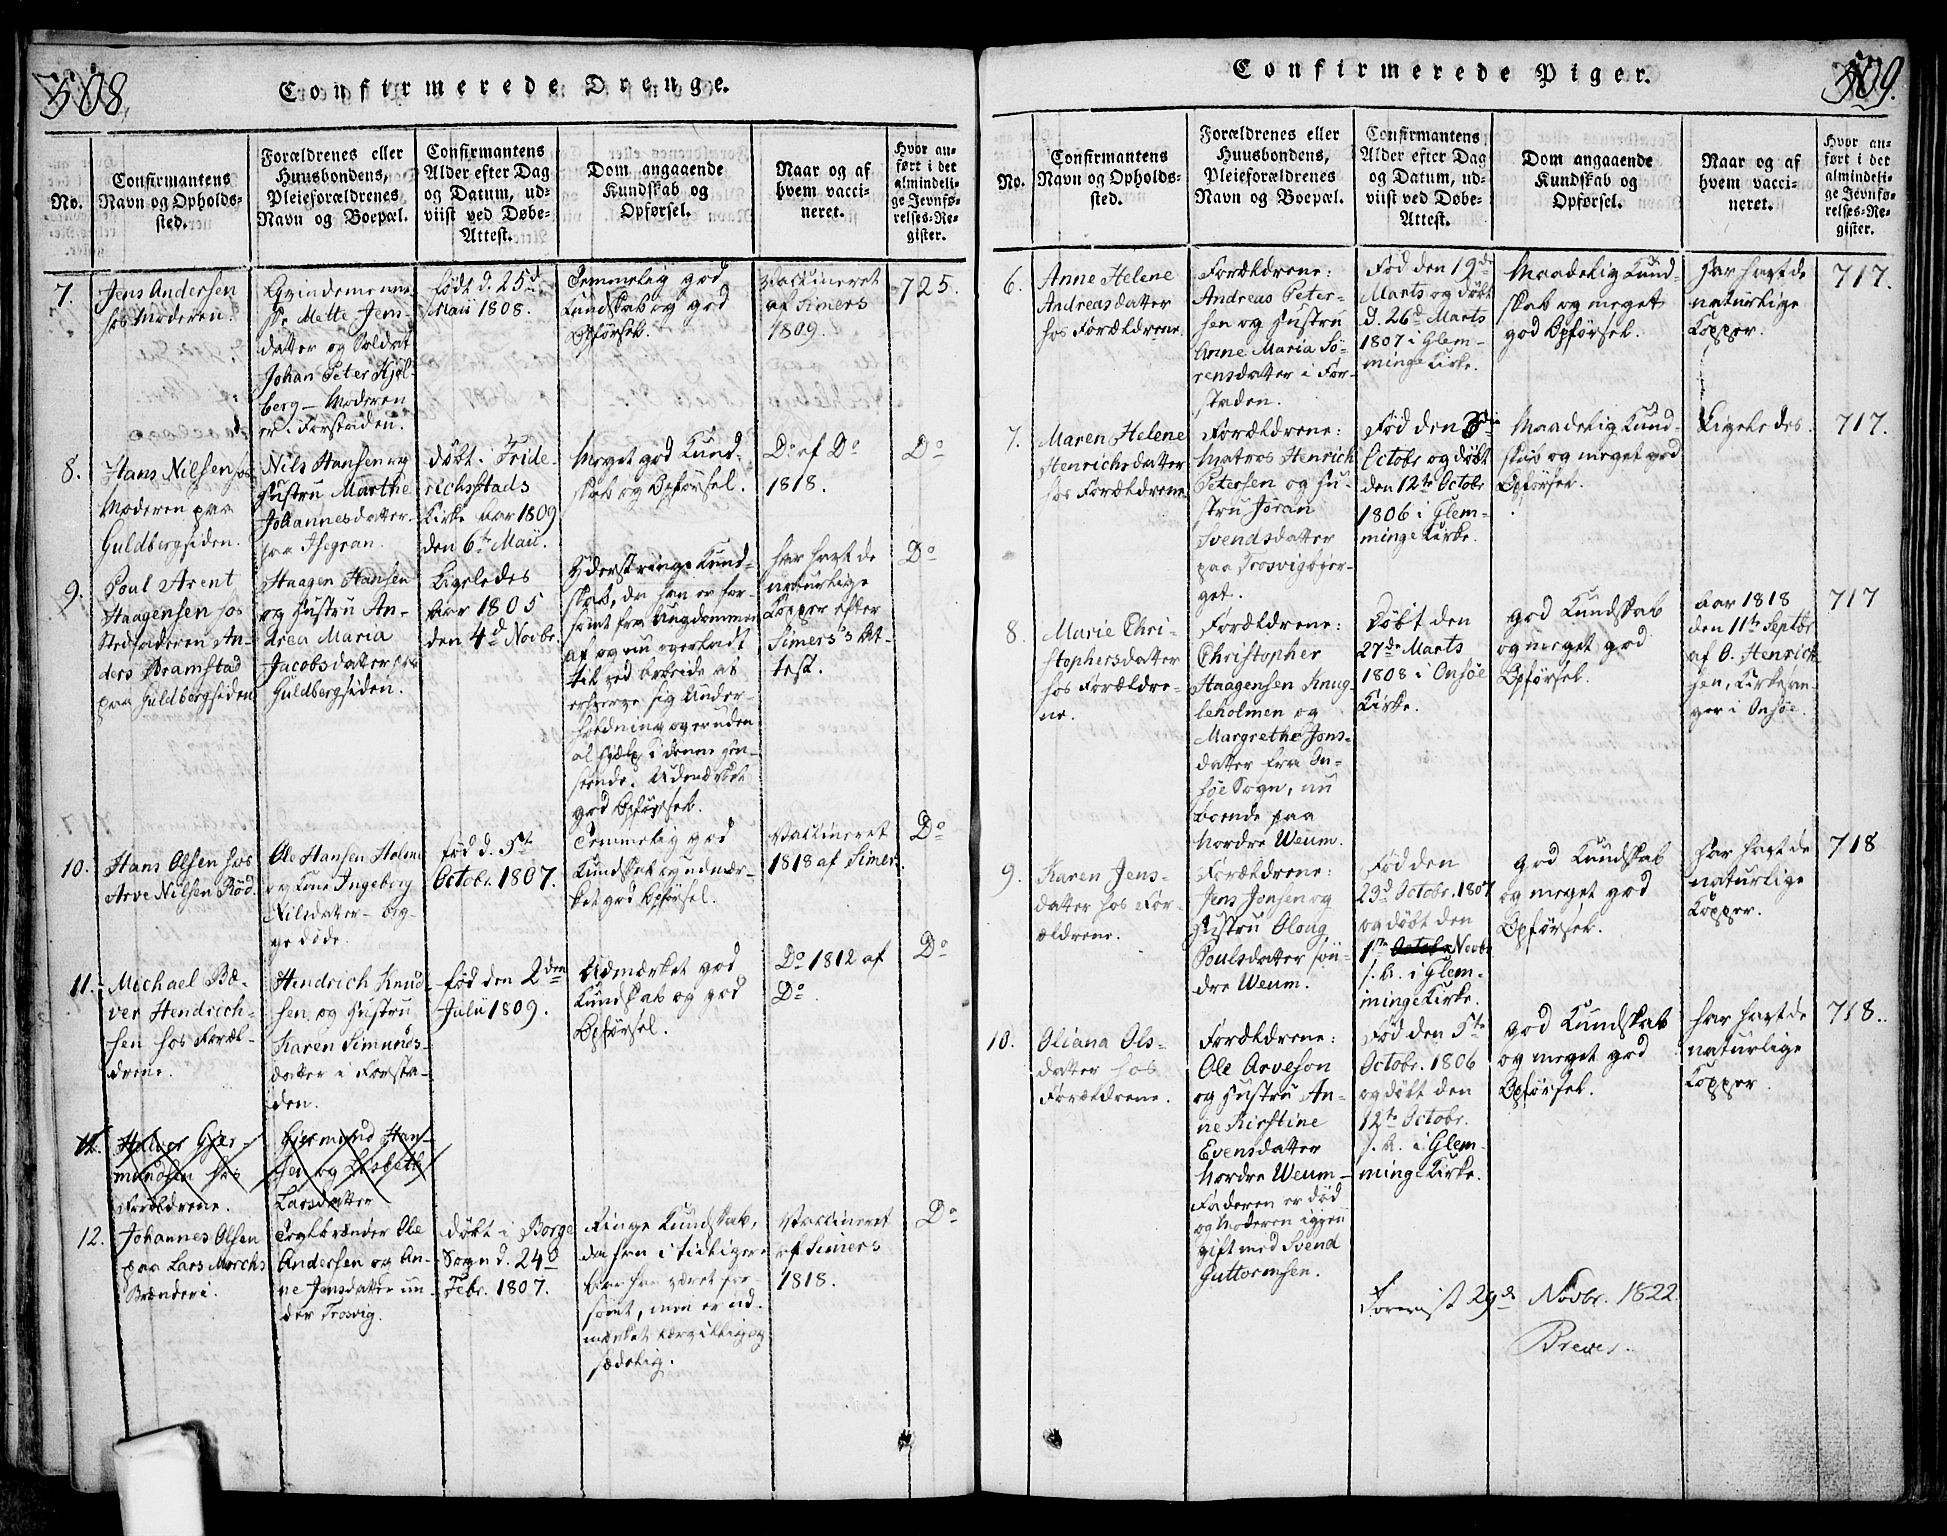 508.
Confirmerede Drenge.
No.
Confirmantens
Navn og Opholds-
sted.
Forældrenes eller
Huusbondens,
Pleieforældrenes
Navn og Boepæl.
Confirmantens
Alder efter Dag
og Datum, ud-
viist ved Døbe-
Attest.
Dom angaaende
Kundskab og
Opførsel.
Naar og af
hvem vacci-
neret.
Hvor an-
ført i det
almindeli-
ge Jevnfø-
relses-Re-
gister.
7.
Jens Andersen
hos Moderen.
Qvindemenne-
sk Mette Jens-
datter og Soldat
Johan Peter Kjøl-
berg – Moderen
er i Forstaden.
født d. 25d
Maii 1808.
Temmelig god
Kundskab og god
Opførsel.
Vaccineret
af Simers
1809.
725.
8.
Hans Nilsen hos
Moderen paa
Guldbergsiden.
Nils Hansen og
Hustru Marthe
Johannesdatter
paa Isegran.
døbt i Fride-
richsstads
Kirke Aar 1809
den 6te Maii.
Meget god Kund-
skab og Opførsel.
Do af Do
1818.
Do
9.
Poul Arent
Haagensen hos
Stedfaderen An-
ders Bramstad
paa Guldbergsiden
Haagen Hansen
og Hustru An-
drea Maria
Jacobsdatter paa
Guldbergsiden.
Ligeledes
Aar 1805
den 4d Novbr.
Yderst ringe Kund-
skab, da han er for-
sømt fra Ungdommen
af og nu overladt
til ved Arbeide at
erhverve sig Under-
holdning og er uden
al Hjælp i denne Hen-
seende. Udmærket
god Opførsel.
har havt de
naturlige
Kopper efter
Simers's At-
test.
Do
10.
Hans Olsen hos
Arve Nilsen Rød.
Ole Hansen Holme
og Kone Ingeborg
Nilsdatter – beg-
ge døde.
født d. 5te
Octobr. 1807.
Temmelig god
Kundskab og udmær-
ket god Opførsel.
Vaccineret
1818 af Simers
Do
11.
Michael Bæ-
ver Hendrich-
sen hos Foræl-
drene.
Hendrich Knud-
sen og Hustru
Karen Simunds-
datter i Forsta-
den.
født den 2den
Julii 1809.
Udmærket god
Kundskab og god
Opførsel.
Do 1812 af
Do.
Do
12.
Halvor Gjer-
mundsen hos
Forældrene.
Giermund Han-
sen og Lisbeth
Larsdatter
12.
Johannes Olsen
paa Lars Morchs
Brænderi.
Teglbrænder Ole
Andersen og An-
ne Jensdatter un-
der Trosvig.
døbt i Borge
Sogn d. 24d
Febr. 1807.
Ringe Kundskab,
da han i tidligere
Aar har været for-
sømt, men er ud-
mærket lærvillig og
sædelig.
Vaccineret
af Simers
1818.
Do
509.
Confirmerede Piger.
No.
Confirmantens
Navn og Opholds-
sted.
Forældrenes eller
Huusbondens,
Pleieforældrenes
Navn og Boepæl.
Confirmantens
Alder efter Dag
og Datum, ud-
viist ved Døbe-
Attest.
Dom angaaende
Kundskab og
Opførsel.
Naar og af
hvem vacci-
neret.
Hvor an-
ført i det
almindeli-
ge Jevnfø-
relses-Re-
gister.
6.
Anne Helene
Andreasdatter
hos Forældrene.
Forældrene:
Andreas Peter-
sen og Hustru
Anne Maria Sö-
rensdatter i For-
staden.
Fød den 19de
Marts og døbt
d. 26d Marts
1807 i Glem-
minge Kirke.
Maadelig Kund-
skab og meget
god Opførsel.
Har havt de
naturlige
Kopper.
717.
7.
Maren Helene
Henrichsdatter
hos Forældrene
Forældrene:
Matros Henrich
Petersen og Hu-
stru Jöran
Svendsdatter
paa Trosvigbjer-
get.
Fød den
Octobr og døbt
den 12te Octobr
1806 i Glem-
minge Kirke.
Maadelig Kund-
skab og meget god
Opførsel.
Ligeledes.
717.
8.
Marie Chri-
stophersdatter
hos Forældre-
ne.
Forældrene:
Christopher
Haagensen Knug-
leholmen og
Margrethe Jons-
datter fra On-
söe Sogn, nu
boende paa
Nordre Weum.
Døbt den
27de Marts
1808 i Onsöe
Kirke.
god Kundskab
og meget god
Opførsel.
Aar 1818
den 11te Septbr
af O. Henrich-
sen, Kirkesan-
ger i Onsöe.
717
9.
Karen Jens-
datter hos For-
ældrene.
Forældrene:
Jens Jonsen og
Hustru Oloug
Poulsdatter søn-
dre Weum.
Fød den
23d Octobr. 1807
og døbt den
1ste Octobr Novbr
s. A. i Glem-
minge Kirke.
god Kundskab
og meget god
Opførsel.
Har havt de
naturlige
Kopper.
718
10.
Oliana Ols-
datter hos
Forældrene.
Forældrene:
Ole Arveson
og Hustru An-
ne Kirstine
Evensdatter
Nordre Weum –
Faderen er død
og Moderen igjen
gift med Svend
Guttormsen.
Fød den 5te
Octobr. 1806
og døbt den
12te Octobr.
s. A. i Glem-
minge Kirke.
god Kundskab
og meget god
Opførsel.
Har havt de
naturlige
Kopper.
718.
Foreviist 29de Novbr. 1822